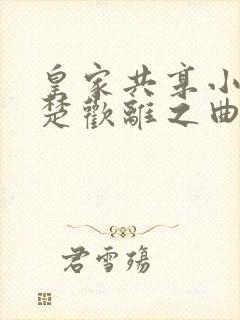 皇家共享小
楚歡離之曲
君雪殤